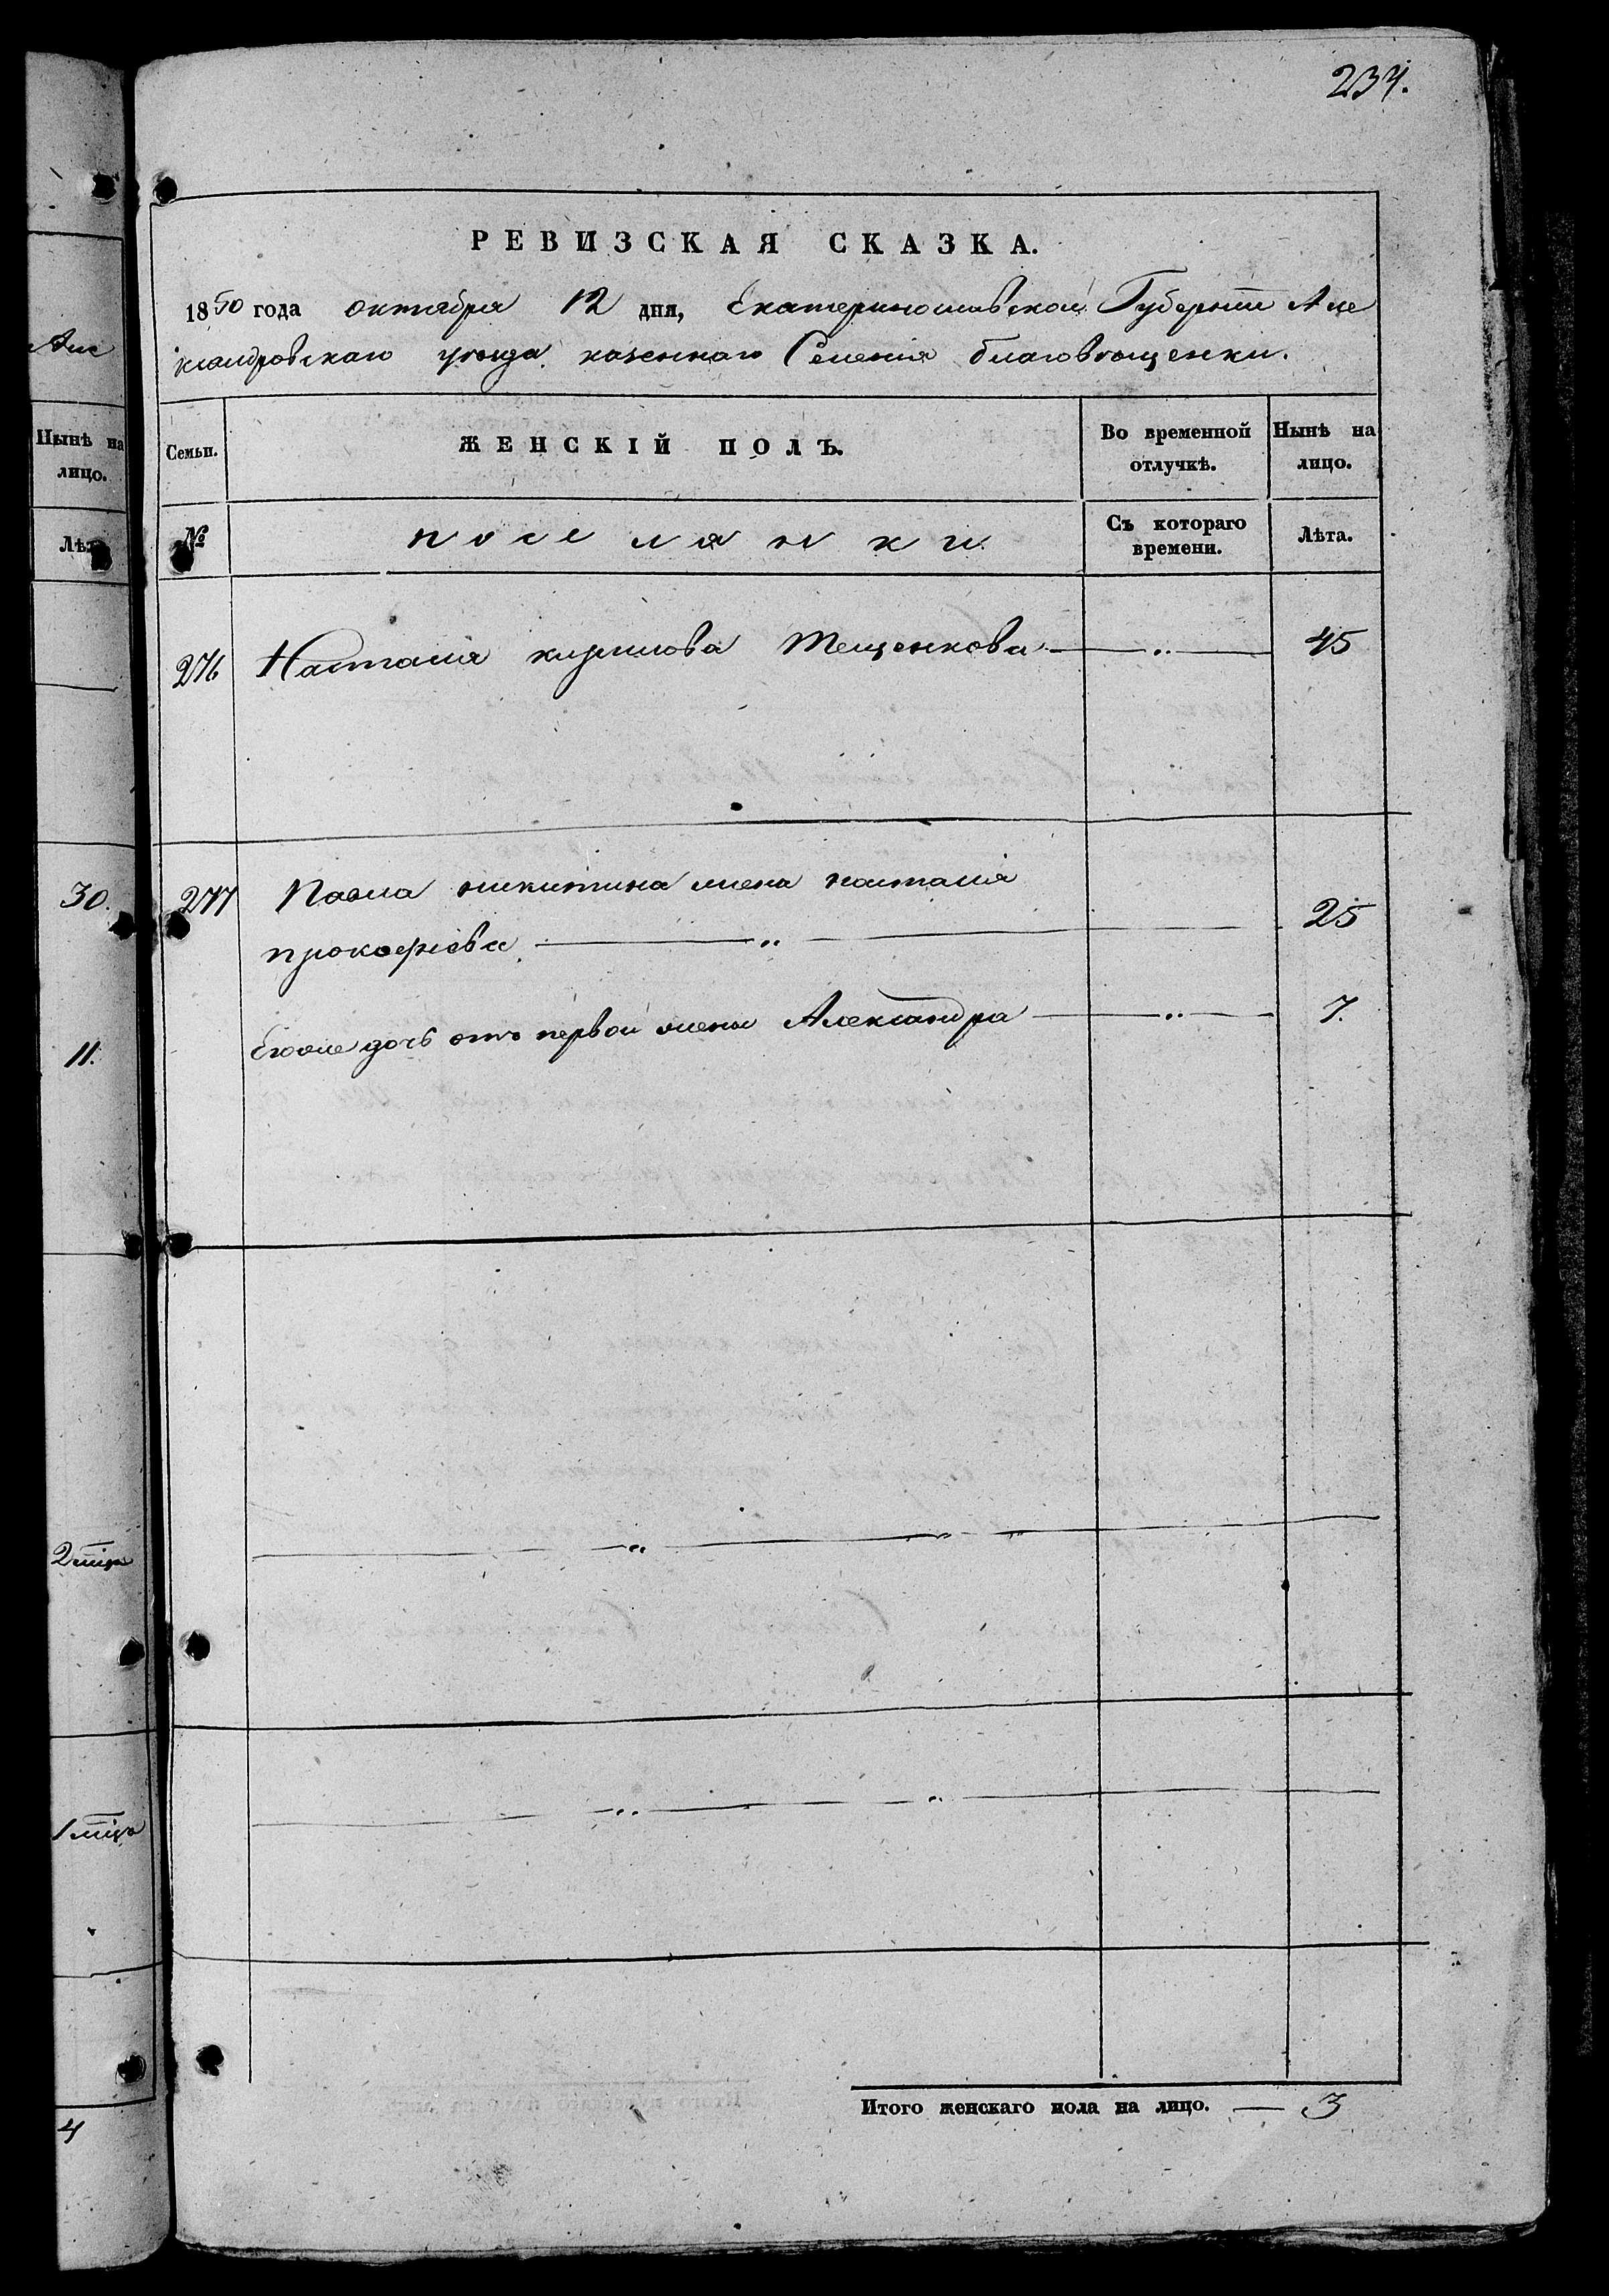 234.
РЕВИЗСКАЯ СКАЗКА.
1850 года октября 12 дня, Екатеринославской Губернии Але
ксандровскаго уѣзда казеннаго Селенія благовѣщенки.
Семьи. ЖЕНСКІЙ ПОЛЪ. Во временной отлучкѣ. Нынѣ на лицо.
№ поселянки Съ котораго времени. Лѣта.
276 Наталія кирилова Тещенкова — „ — 45
277 Павла никитина жена наталія
прокофіева — „ — 25
Егоже дочь отъ первой жены Александра — „ — 7.
Итого женскаго пола на лицо. — 3
Але
Нынѣ на
лицо.
Лѣта
30.
11.
4